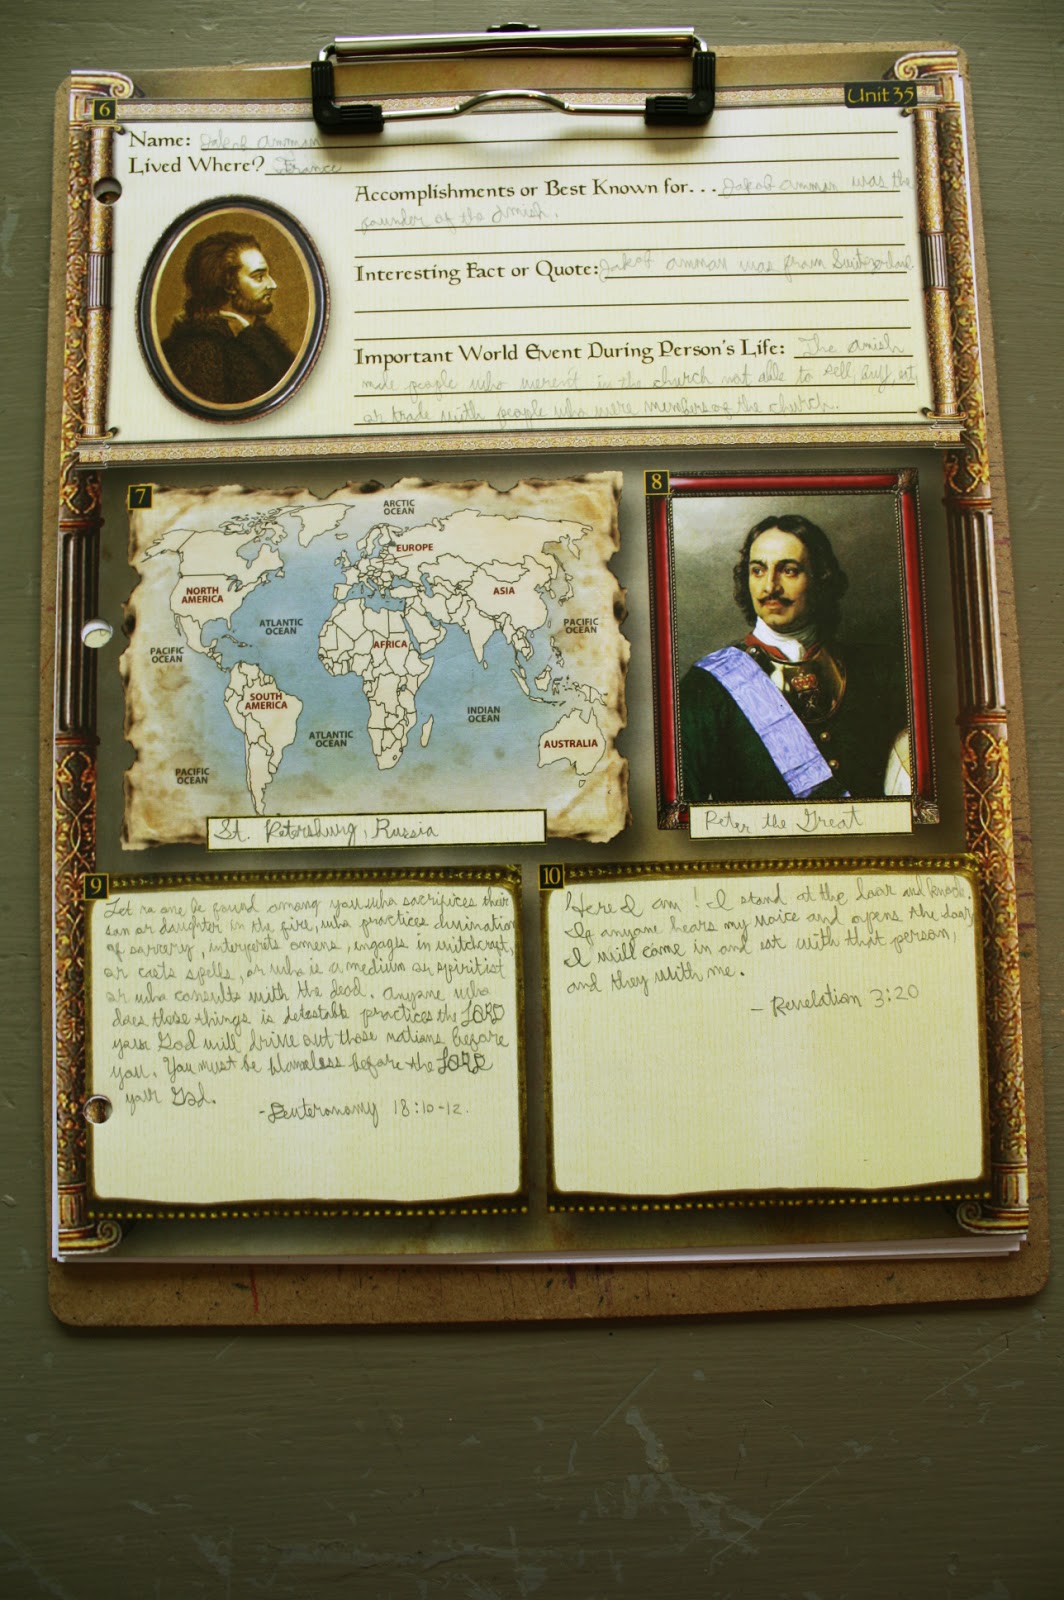 6
Unit 35
Name: Jakob Amman
Lived Where? France
Accomplishments or Best Known for. . . Jakob Amman was the
founder of the Amish.
Interesting Fact or Quote: Jakob Amman was from Switzerland.
Important World Event During Person's Life: The Amish
made people who weren't in the church not able to sell, buy, eat,
or trade with people who were members of the church.
7
8
ARCTIC
OCEAN
EUROPE
NORTH
AMERICA
ASIA
ATLANTIC
OCEAN
PACIFIC
OCEAN
AFRICA
PACIFIC
OCEAN
SOUTH
AMERICA
INDIAN
OCEAN
ATLANTIC
OCEAN
AUSTRALIA
PACIFIC
OCEAN
St. Petersburg, Russia
Peter the Great
9
Let no one be found among you who sacrifices their
son or daughter in the fire, who practices divination
of sorcery, interprits omens, engages in witchcraft,
or casts spells, or who is a medium or spiritist
or who consults with the dead. Anyone who
does these things is detestable practices the LORD
your God will drive out those nations before
you. You must be blameless before the LORD
your God.
-Deuteronomy 18:10-12.
10
Here I am! I stand at the door and knock.
If anyone hears my voice and opens the door,
I will come in and eat with that person,
and they with me.
- Revelation 3:20